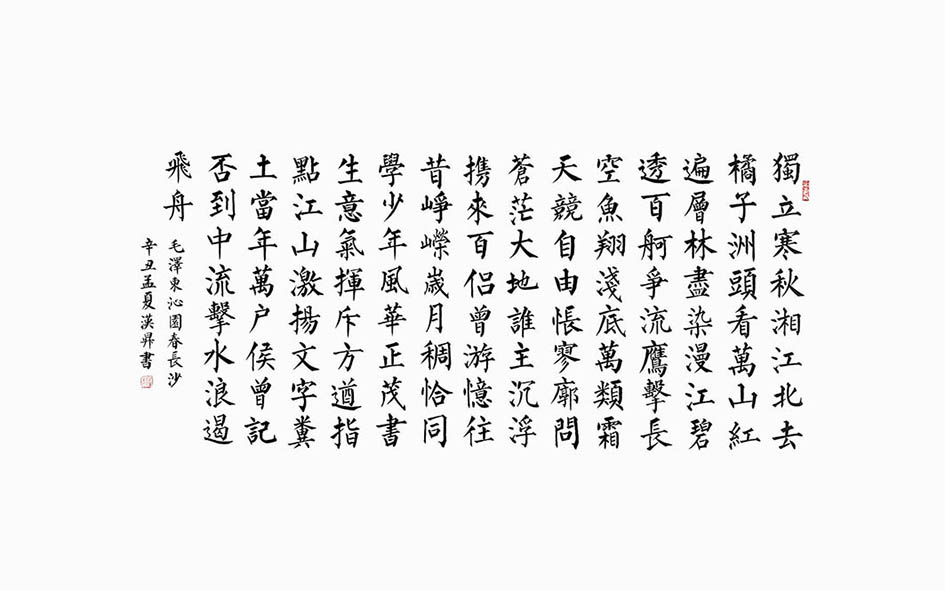 獨立寒秋湘江北去
橘子洲頭看萬山紅
遍層林盡染漫江碧
透百舸爭流鷹擊長
空魚翔淺底萬類霜
天競自由悵寥廓問
蒼茫大地誰主沉浮
携來百侣曾游憶往
昔崢嶸嵗月稠恰同
學少年風華正茂書
生意氣揮斥方遒指
點江山激揚文字糞
土當年萬户侯曾記
否到中流擊水浪遏
飛舟
毛澤東沁園春長沙
辛丑孟夏漢昇書